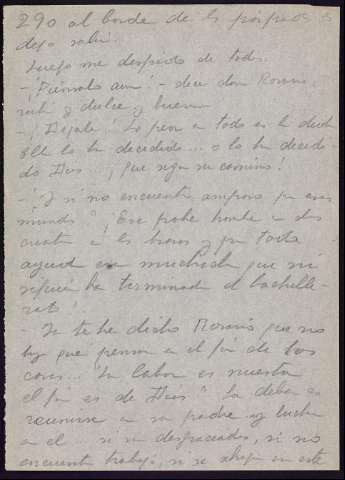 290 al borde de los párpados
dejo salir.
Luego me despido de todos.
- ¡Piénsalo aun! - dice don Rosario,
y dulce y bueno
- ¡Dejale! Lo peor en todo es la duda
Ella lo ha decidido... o lo ha decidi-
do Dios... ¡Que siga su camino!
- ¿Y si no encuentra amparo por esos
mundos? ¡Ese pobre hombre a dos
y por toda
ayuda esa muchacha que ni
siquiera ha terminado el bachille-
rato!
- Ya te he dicho Rosario que no
hay que pensar en el fin de las
cosas... "La labor es nuestra
el fin es de Dios" Su deber es
reunirse a su padre y luchar
con él... si son desgraciados, si no
encuentra trabajo, si se ahogan en este